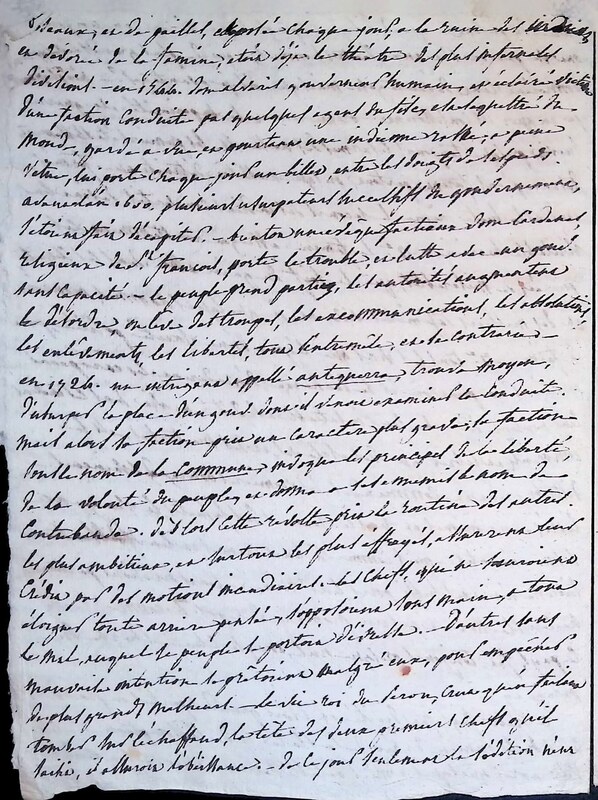 et de paille, exposée chaque jour, a la ruine des
en dévorée de la famine, etoit déja le théatre des plus infernales
divisions. - en 1544. dom alvar gouverneur humain, et éclairé
d'une faction conduite par quelques agens du fisc, est la
monde, gardé a vue, et pourtant une indienne a peine
vétue, lui porte chaque jour un billet, entre les doigts de ses pieds.
avant l'an 1600. plusieurs usurpateurs successifs du gouvernement,
s'étoient fait décapiter. - bientot un évéque factieux dom Cardenas,
religieux de St. francois, porte le trouble, en lutte avec un gouvr.
sans capacité. - le peuple prend parti, les autorités augmentent
le désordre, on léve des troupes, les excommunications, les absolutions,
les enlévements, les libertés, tout s'entreméle, et se contrarie -
en 1726. un intrigant appellé antequerra, trouve moyen,
d'usurper la place d'un gouvr. dont il venoit examiner la conduite.
mais alors la faction prit un caractere plus grave; la faction
sous le nom de la Commune, invoque les principes de la liberté,
de la volonté du peuple, et donne a ses ennemis le nom de
Contrebande. dès lors cette révolte prit la routine des autres
les plus ambitieux, et surtout les plus effrayés, assurerent leur
Crédit par des motions incendiaires. - les chefs, qui ne sauroient
éloigner toute arriere pensée, s'opposoient sous main, a tout
le mal, auquel le peuple se portoit d'eux. - D'autres sans
mauvaise intention se prétoient malgré eux, pour empécher
de plus grands malheurs. - le vice roi du Perou, crut qu'en faisant
tomber sur l'échaffaud, la téte des deux premiers chefs qu'il
saisit, il assuroit l'obéissance. - de ce jour seulement la sédition